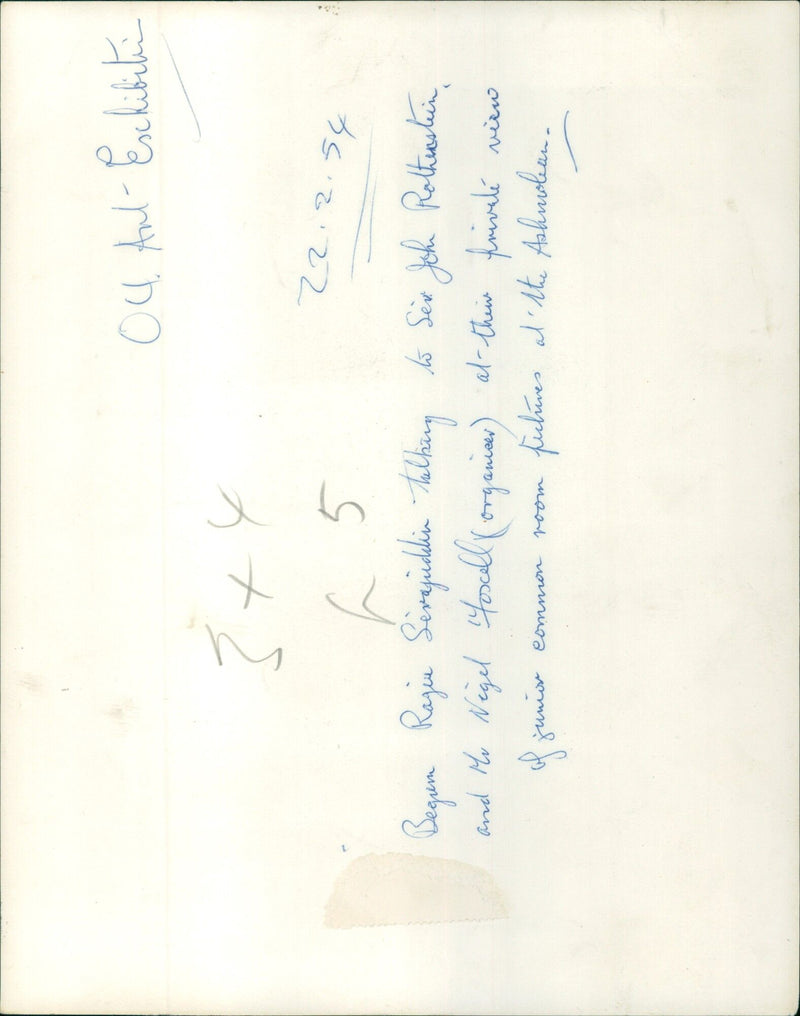 OU. Art-Exhibition
22.2.54
3 + 4
5
Begum Razia Serajuddin talking to Sir John Rothenstein,
and Mr Nigel Foxell (organiser) at their private view
of junior common room pictures at the Ashmolean.